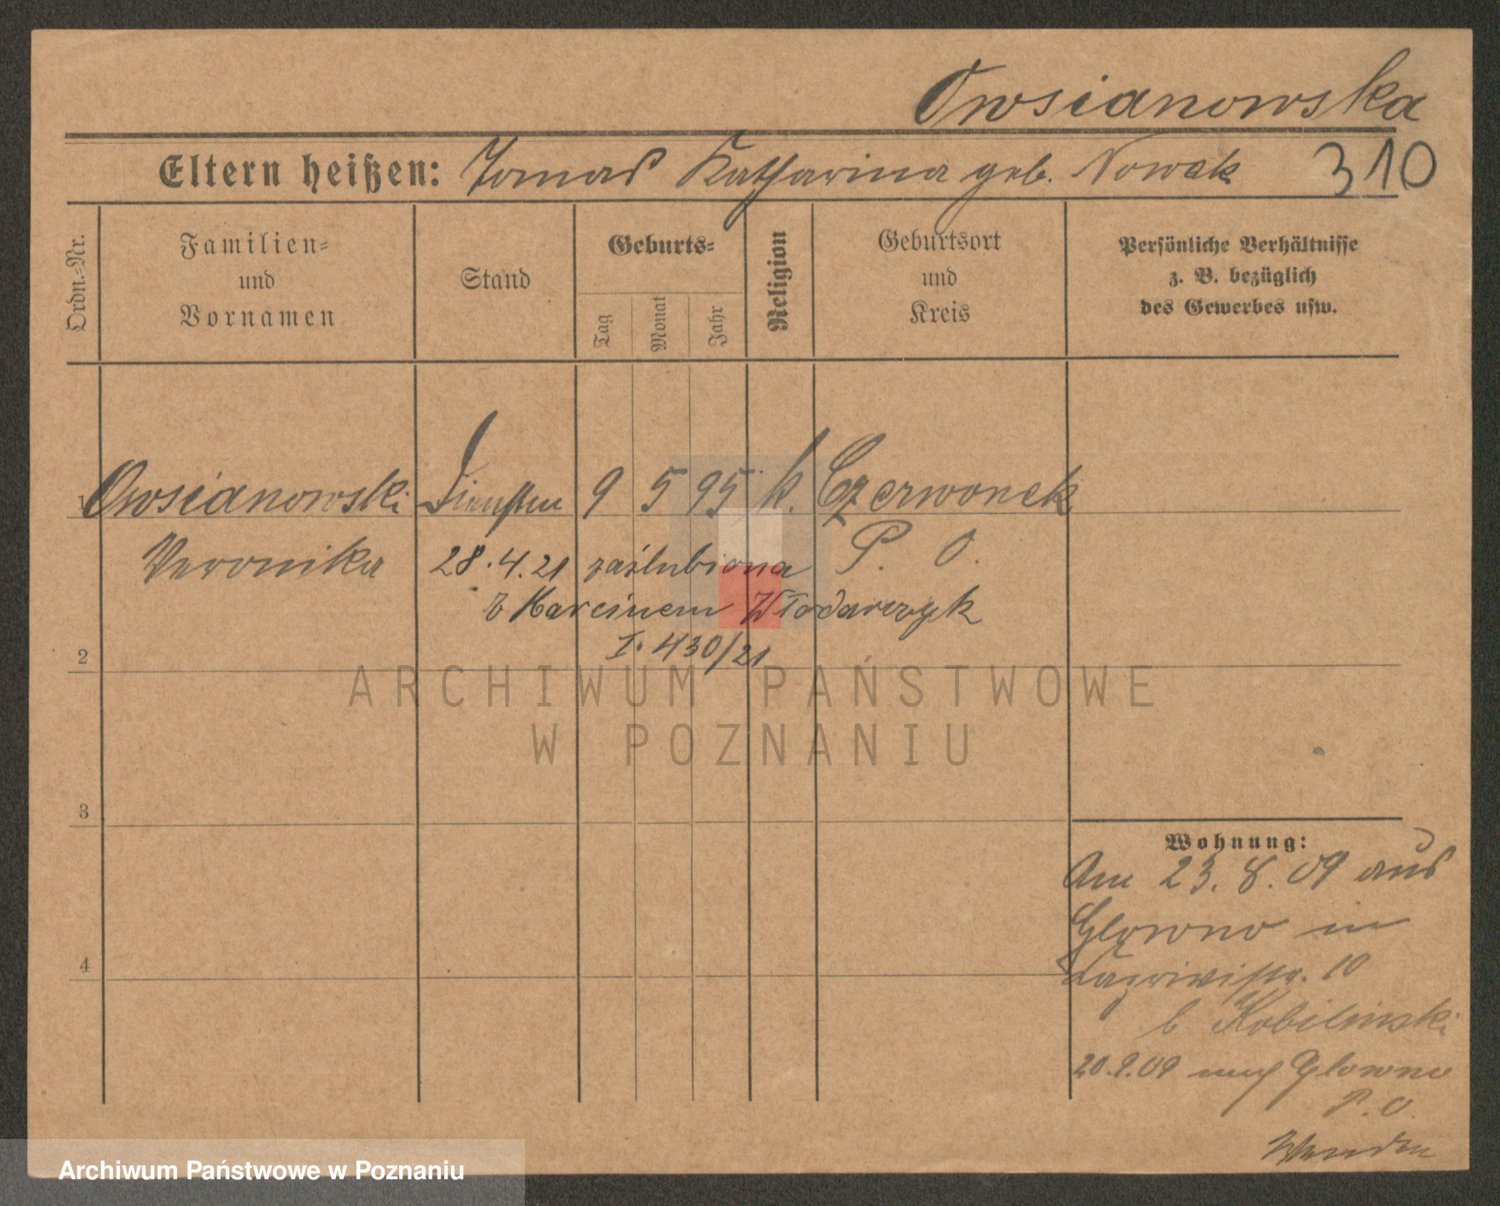 Owsianowska
Eltern heißen: Tomas Katharina geb. Nowak 310
Ordn.-Nr.
Familien-
und
Vornamen
Stand
Geburts-
Tag
Monat
Jahr
Religion
Geburtsort
und
Kreis
Persönliche Verhältnisse
z. B. bezüglich
des Gewerbes usw.
1 Owsianowski 9 5 95 k. Czerwonek
Veronika 28.4.21 zaślubiona P. O.
z Marcinem Włodarczyk
I. 430/21
2
ARCHIWUM PAŃSTWOWE
W POZNANIU
3
Wohnung:
Am 23.8.09 aus
Glowno in
10
b Kobilinski
4
20.9.09 nach Glowno
P.O.
Archiwum Państwowe w Poznaniu